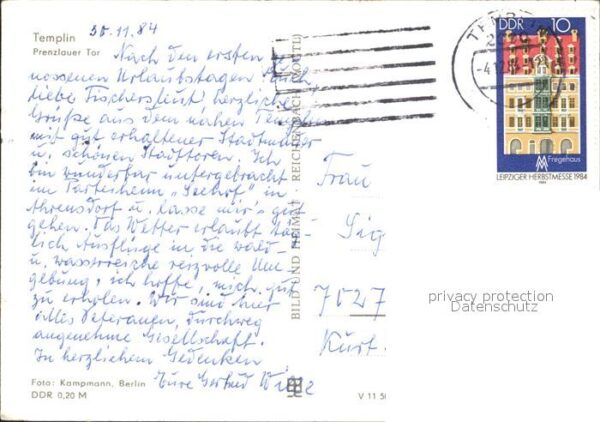 Templin
Prenzlauer Tor
30.11.84
Nach den ersten ge-
nossenen Urlaubstagen
liebe Fischersleut' herzliche
Grüße aus dem nahen Templin
mit gut erhaltener Stadtmauer
u. schönen Stadttoren. Ich
bin wunderbar untergebracht
im Parteiheim „Seehof" in
Ahrensdorf u. lasse mir's gut
gehen. Das Wetter erlaubt täg-
lich Ausflüge in die wald-
u. wasserreiche reizvolle Um
gebung, ich hoffe, mich gut
zu erholen. Wir sind hier
alles Veteranen, durchweg
angenehme Gesellschaft.
In herzlichem Gedenken
Eure Gertrud
Foto: Kampmann, Berlin
DDR 0,20 M
V 11 50
BILD UND HEIMAT · REICHENBACH (VOGTL)
Frau
Sig
7027
Kurt
DDR 10
Fregehaus
LEIPZIGER HERBSTMESSE 1984
privacy protection
Datenschutz